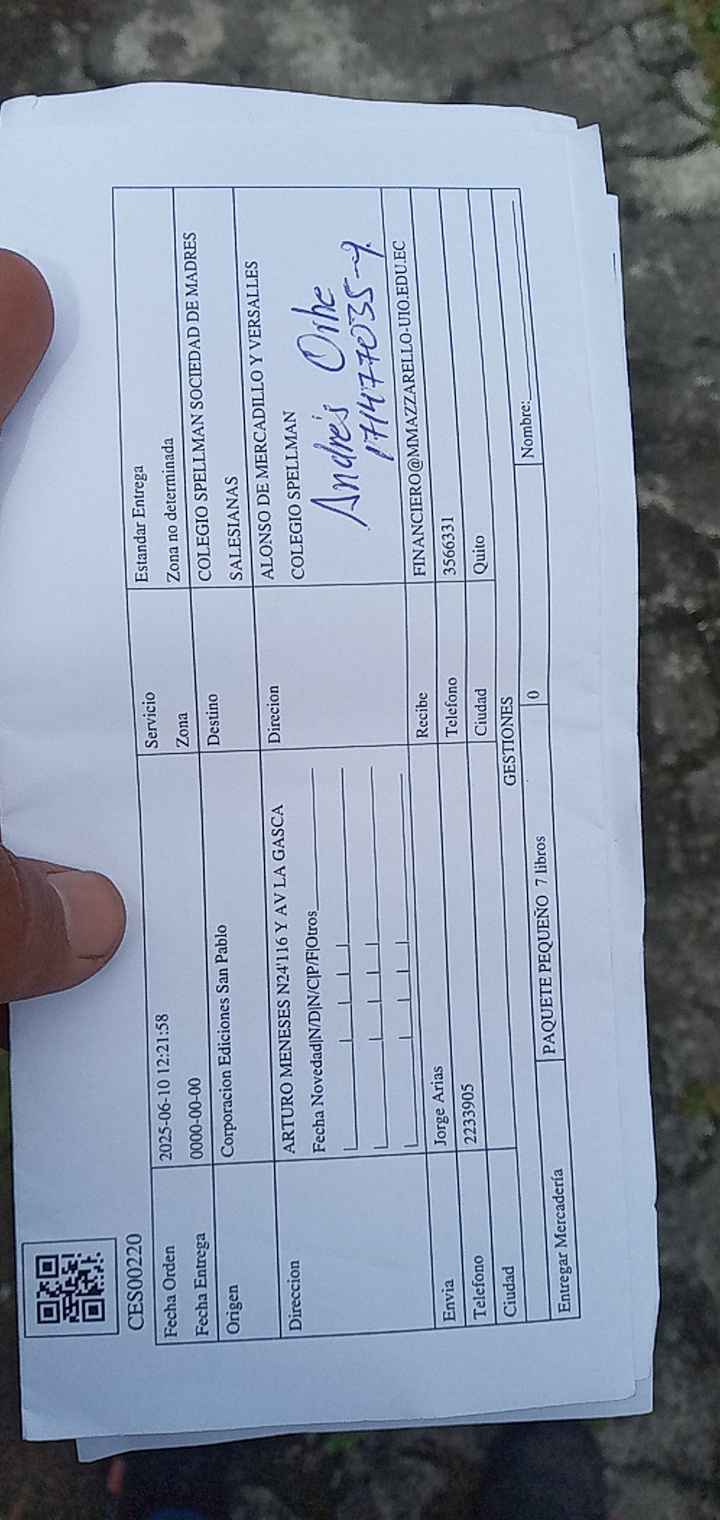 CES00220
Fecha Orden 2025-06-10 12:21:58 Servicio Estandar Entrega
Fecha Entrega 0000-00-00 Zona Zona no determinada
Origen Corporacion Ediciones San Pablo Destino COLEGIO SPELLMAN SOCIEDAD DE MADRES
SALESIANAS
Direccion ARTURO MENESES N24'116 Y AV LA GASCA Direcion ALONSO DE MERCADILLO Y VERSALLES
Fecha Novedad|N/D|N/C|P/F|Otros COLEGIO SPELLMAN
Andrés
171477035-9
Envia Jorge Arias Recibe FINANCIERO@MMAZZARELLO-UIO.EDU.EC
Telefono 2233905 Telefono 3566331
Ciudad Ciudad Quito
GESTIONES
Entregar Mercadería PAQUETE PEQUEÑO 7 libros 0 Nombre: